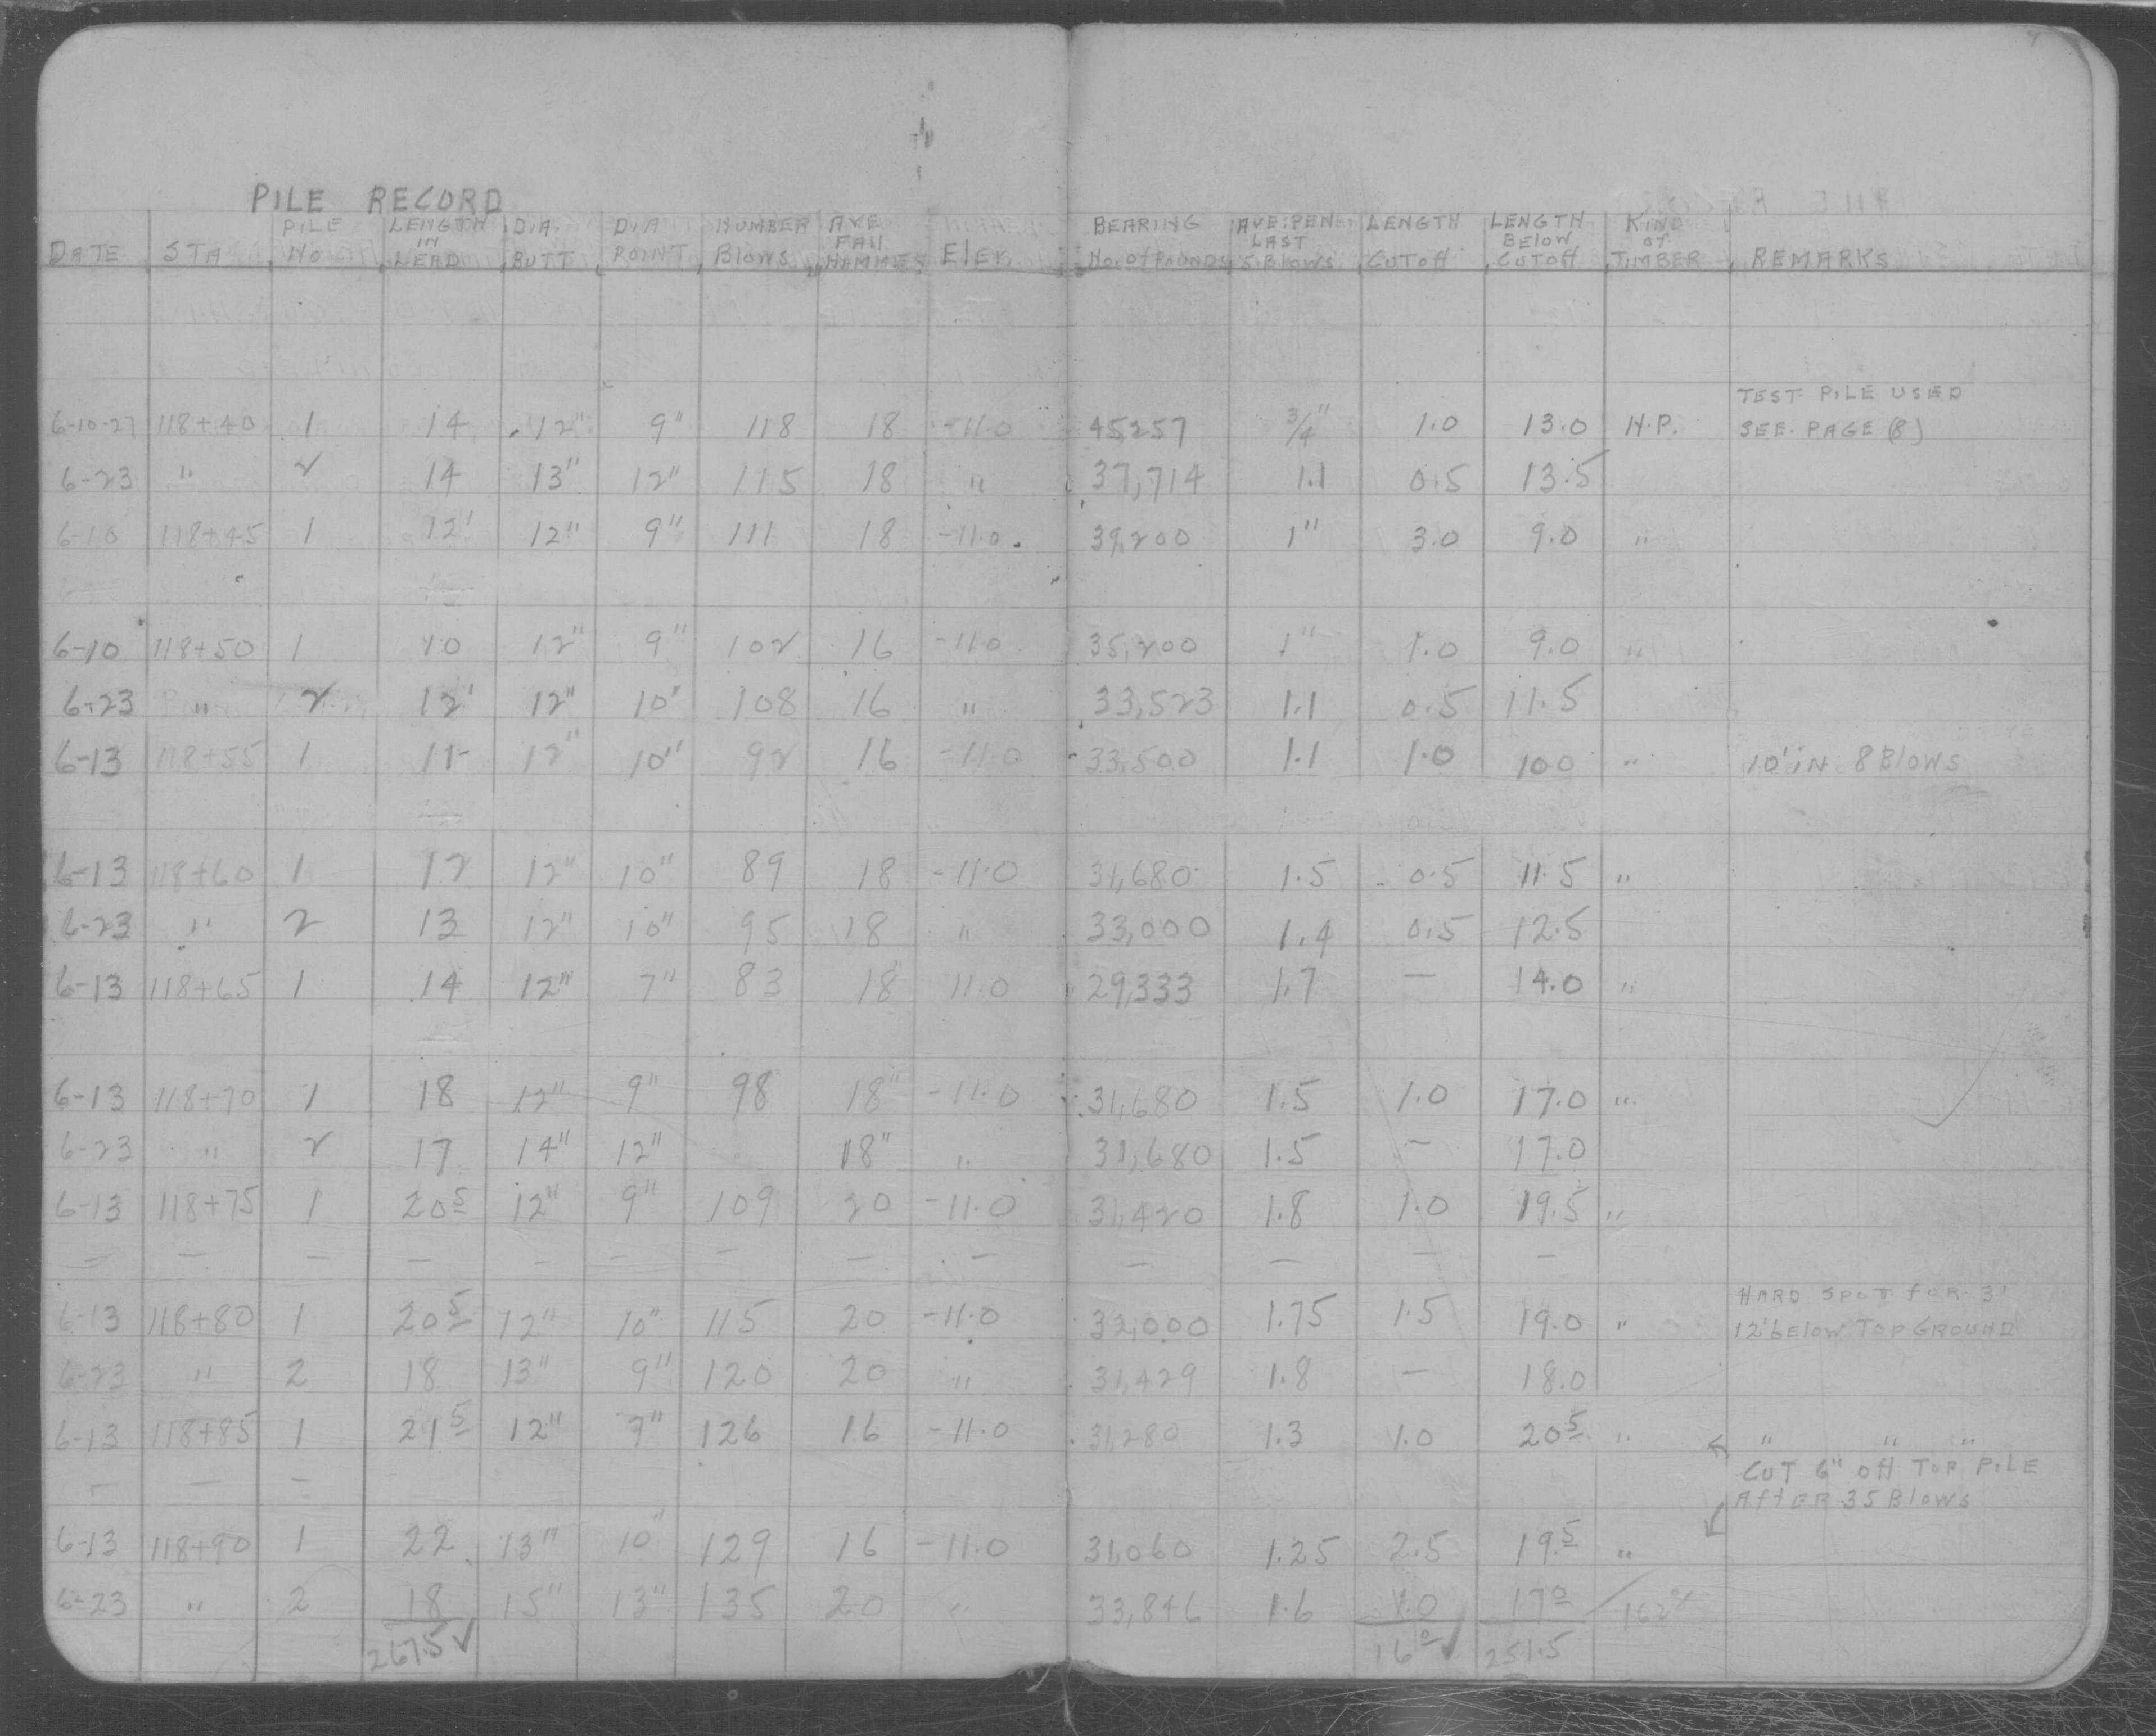 PILE RECORD
DATE STA PILE No LENGTH IN LEAD DIA. BUTT DIA POINT NUMBER Blows AVE FAll HAMMER Elev. BEARING No. of POUNDS AVE. PEN LAST 5 Blows LENGTH CUTOff LENGTH BEloW CUTOff KIND of TIMBER REMARKS
TEST PILE USED
6-10-27 118+40 1 14 12" 9" 118 18 -11.0 45257 3/4" 1.0 13.0 H.P. SEE PAGE (8)
6-23 " 2 14 13" 12" 115 18 " 37,714 1.1 0.5 13.5
6-10 118+45 1 12' 12" 9" 111 18 -11.0 39,200 1" 3.0 9.0 "
6-10 118+50 1 10 12" 9" 102 16 -11.0 35,200 1" 1.0 9.0 "
6-23 " 2 12' 12" 10" 108 16 " 33,523 1.1 0.5 11.5
6-13 118+55 1 11- 12" 10" 92 16 -11.0 33,500 1.1 1.0 100 " 10' iN 8 Blows
6-13 118+60 1 12 12" 10" 89 18 -11.0 31,680 1.5 0.5 11.5 "
6-23 " 2 13 12" 10" 95 18 " 33,000 1.4 0.5 12.5
6-13 118+65 1 14 12" 7" 83 18" 11.0 29,333 1.7 — 14.0 "
6-13 118+70 1 18 12" 9" 98 18" -11.0 31,680 1.5 1.0 17.0 "
6-23 " 2 17 14" 12" 18" " 31,680 1.5 — 17.0
6-13 118+75 1 20 5 12" 9" 109 20 -11.0 31,420 1.8 1.0 19.5 "
— — — — — — — — — — — — —
HARD SPOT foR 3'
6-13 118+80 1 20 5 12" 10" 115 20 -11.0 32,000 1.75 1.5 19.0 " 12' bElow ToP GROUND
6-23 " 2 18 13" 9" 120 20 " 31,429 1.8 — 18.0
6-13 118+85 1 21 5 12" 7" 126 16 -11.0 31,280 1.3 1.0 20 5 " " " "
— — — CUT 6" off ToP PILE
AftER 35 Blows
6-13 118+90 1 22 13" 10" 129 16 -11.0 31,060 1.25 2.5 19.5 "
6-23 " 2 18 15" 13" 135 20 " 33,846 1.6 1.0 17 0
267.5 ✓ 16 0 ✓ 251.5